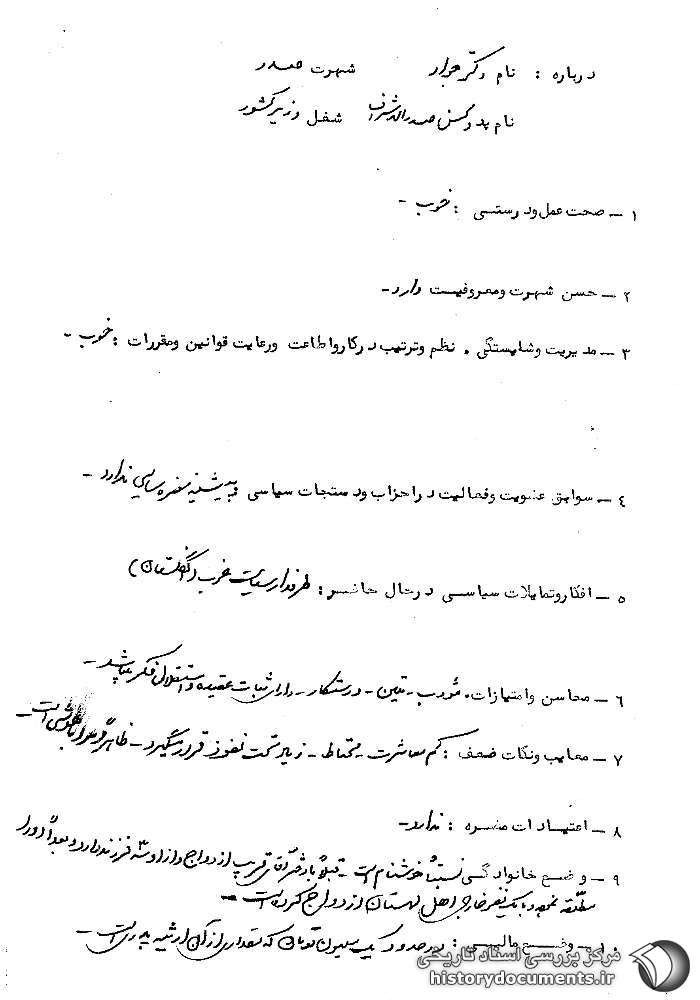 درباره : نام دکتر جواد شهرت صدر
نام پدر محسن صدرالاشراف شغل وزیر کشور
۱ – صحت عمل ودرستی : خوب –
۲ – حسن شهرت ومعروفیت دارد –
۳ – مدیریت وشایستگی . نظم وترتیب درکارواطاعت ورعایت قوانین ومقررات : خوب –
۴ – سوابق عضویت وفعالیت دراحزاب ودستجات سیاسی پیشینه مضره سیاسی ندارد –
۵ – افکاروتمایلات سیاسی درحال حاضر : طرفدار سیاست غرب (انگلستان)
۶ – محاسن وامتیازات . مؤدب – متین – درستکار – دارای ثبات عقیده و استقلال فکر میباشد –
۷ – معایب ونکات ضعف : کم معاشرت – محتاط – زیر تحت نفوذ قرار میگیرد – ظاهراً است –
۸ – اعتیادات مضره : ندارد –
۹ – وضع خانوادگی نسبتاً خوشنام است – قبلاً با دختر آقای قریب ازدواج و از او سه فرزند دارد و بعداً او را
مطلقه نموده و با یک نفر خارجی اهل لهستان ازدواج کرده است –
۱۰ – وضع مالی : در حدود یک میلیون تومان که مقداری از آن ارثیه پدری است –
مرکز بررسی اسناد تاریخی
historydocuments.ir